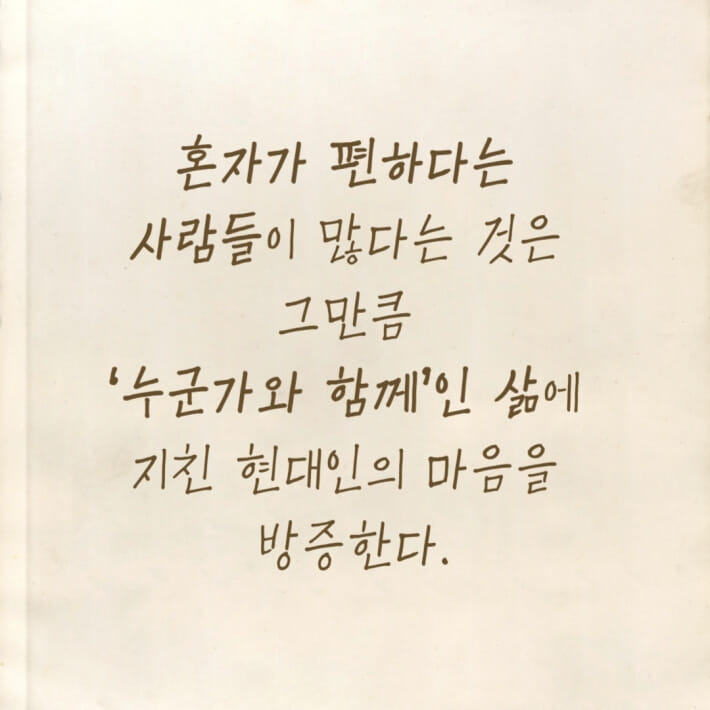 혼자가 편하다는
사람들이 많다는 것은
그만큼
‘누군가와 함께’인 삶에
지친 현대인의 마음을
방증한다.